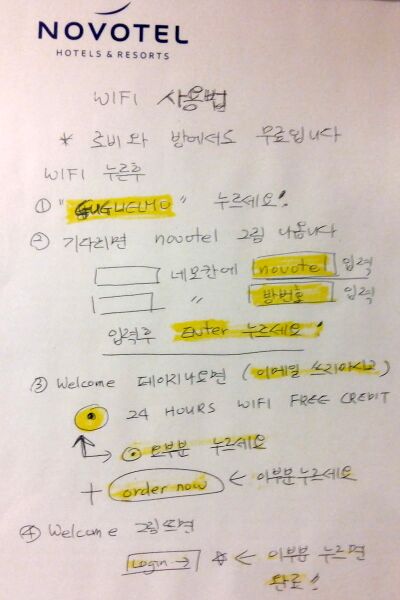 NOVOTEL
HOTELS & RESORTS
WIFI 사용법
* 로비와 방에서도 무료입니다
WIFI 누른후
① "GUGLIELMO" 누르세요!
② 기다리면 novotel 그림 나옵니다
네모칸에 novotel 입력
" 방번호 입력
입력후 Enter 누르세요!
③ Welcome 페이지나오면 (이메일 쓰지마시고)
24 HOURS WIFI FREE CREDIT
⊙ 요부분 누르세요
+ order now ← 이부분누르세요
④ Welcome 그림뜨면
Login → ☆ ← 이부분 누르면
완료!!